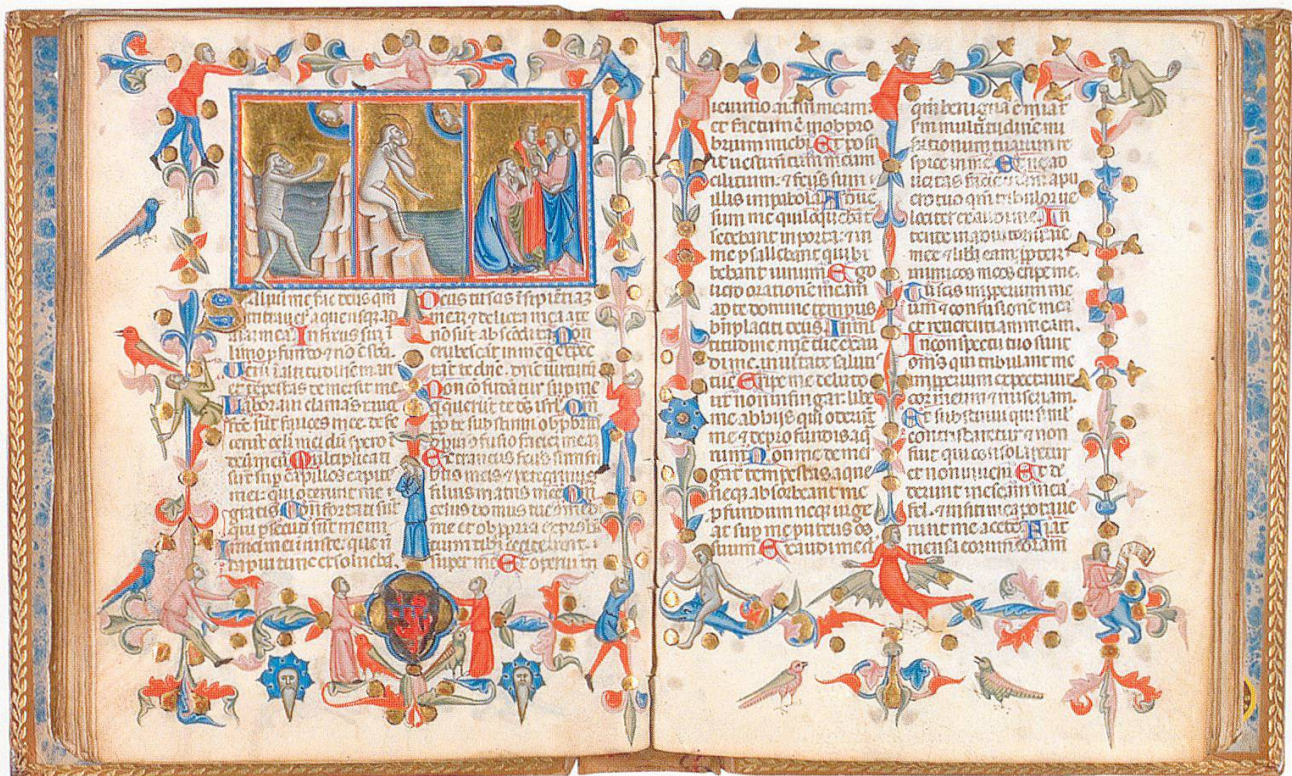 Saluum me fac deus qm
intrauer aque usq ad
aīaz mea Infixus suz ī
limo pfundo ⁊ nō ē sba
Ueni ī altitudinem maris
et tempestas demersit me
Laboraui clamās rauce
fce sūt fauces mee defe
cerūt oculi mei dū spero ī
deū meū Multiplicati
sūt sup capillos capitis
mei qui oderunt me
gratis Confortati sūt
qui psecuti sūt me ini
mici mei iniuste que nō
rapui tunc exsoluebā
Deus tu scis īsipientiaz
meaz ⁊ delicta mea a te
nō sūt abscōdita Non
erubescāt in me q expec
tāt te dne dne uirtutū
Non cōfūdātur sup me
q querūt te ds isrl Qm
ppter te sustinui obpbriū
opuit cōfusio faciez meaz
Extraneus fcus sum frībus
meis ⁊ peregrinus
filiis matris mee Qm
zelus domus tue comedit
me et obpbria exprobrā
tium tibi ceciderunt
super me Et operui in
47
ieiunio aīam meam
et factum ē in obpro
brium michi Et posu
i uestimētum meum
cilicium ⁊ fcus sum
illis in parabolā Aduer
sum me qui loquebāt
sedebant in porta ⁊ in
me psallebant qui bi
bebant uinum Ego
uero orationem meam
ad te domine tempus
bnplaciti deus In mul
titudine mīe tue exau
di me in ueritate salutis
tue Eripe me de luto
ut non infingar libera
me ab hiis qui oderūt
me ⁊ de profundis aqua
rum Non me demer
gat tempestas aque
neqz absorbeat me
pfundum neqz urge
at sup me puteus os
suum Exaudi me dne
qm benigna ē mīa tua
scdm multitudinē mi
serationum tuarum re
spice in me Et ne auer
tas faciē tuam a pu
ero tuo qm tribulor ue
lociter exaudi me In
tende anime
mee ⁊ libera eam ppter
inimicos meos eripe me
Tu scis īproperium me
um ⁊ confusionē meā
et reuerentiam meam
In conspectu tuo sunt
omīs qui tribulant me
improperium expectauit
cor meum ⁊ miseriam
Et sustinui qui simul
contristaretur ⁊ non
fuit ⁊ qui consolaretur
et non inueni Et de
derunt in escam meā
fel ⁊ in siti mea potaue
runt me aceto Fiat
mensa eorum coram